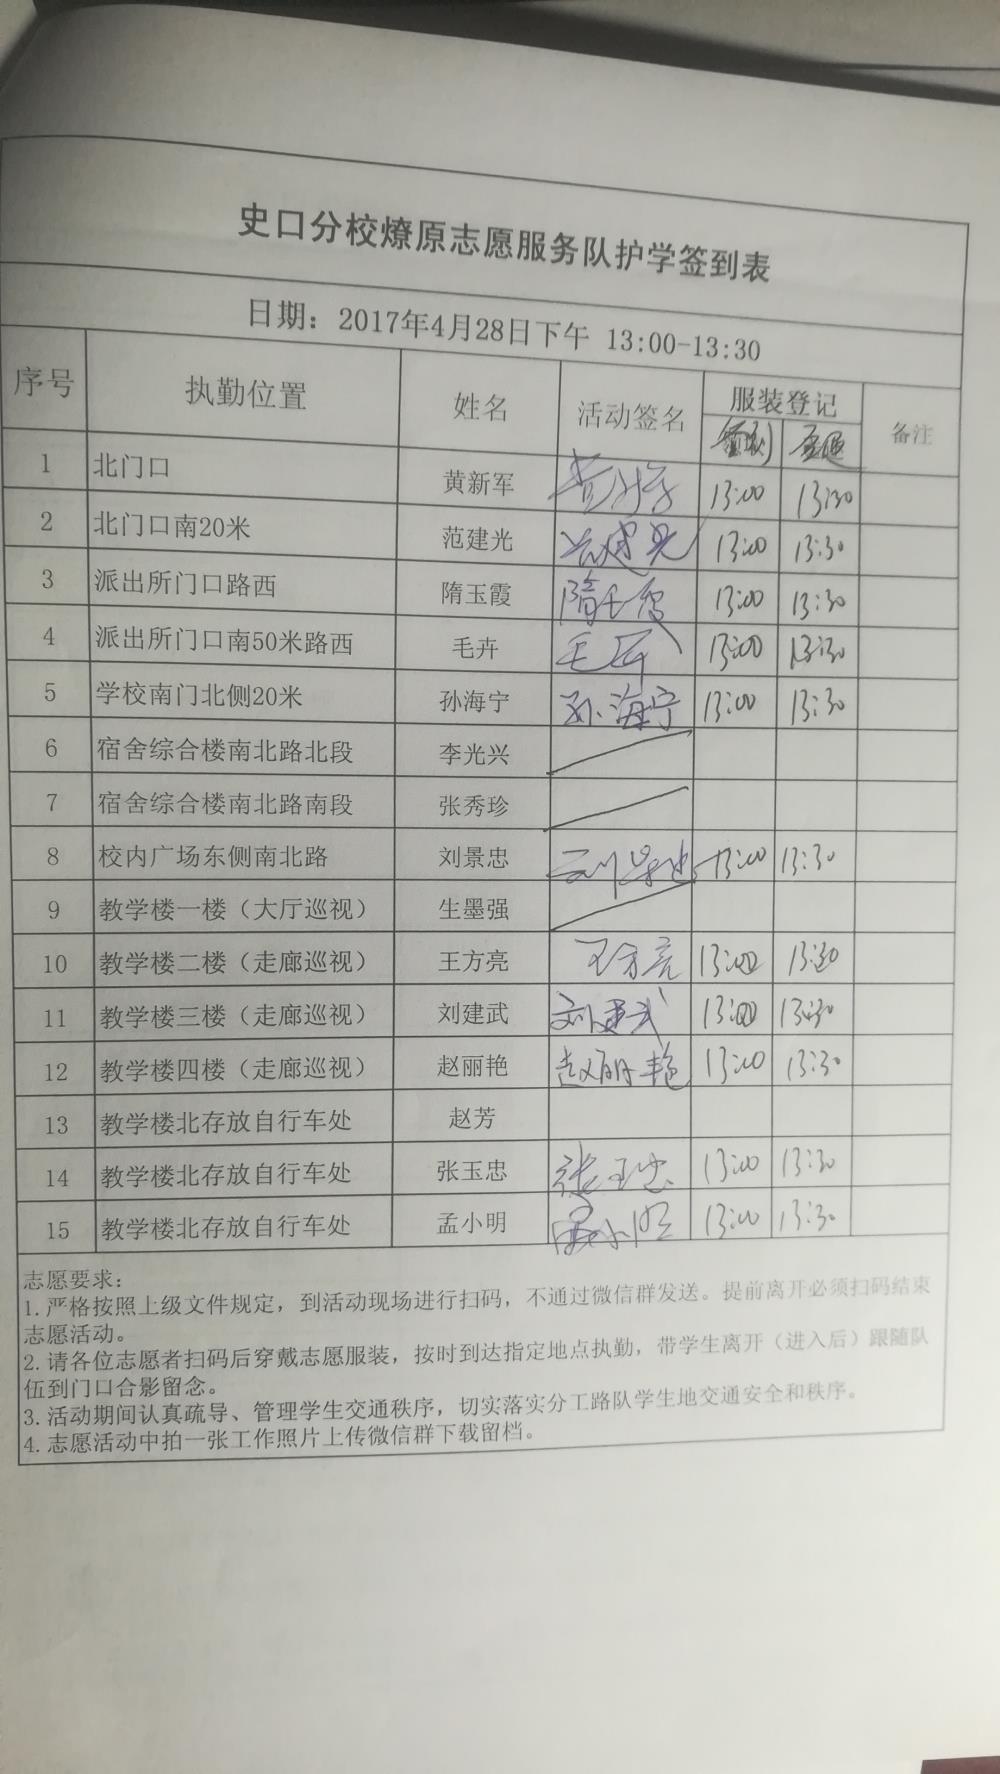 史口分校燎原志愿服务队护学签到表
日期：2017年4月28日下午 13:00-13:30
序号 执勤位置 姓名 活动签名 服装登记 备注
1 北门口 黄新军 13:00 13:30
2 北门口南20米 范建光 范建光 13:00 13:30
3 派出所门口路西 隋玉霞 隋玉霞 13:00 13:30
4 派出所门口南50米路西 毛卉 毛卉 13:00 13:30
5 学校南门北侧20米 孙海宁 孙海宁 13:00 13:30
6 宿舍综合楼南北路北段 李光兴
7 宿舍综合楼南北路南段 张秀珍
8 校内广场东侧南北路 刘景忠 刘景忠 13:00 13:30
9 教学楼一楼（大厅巡视） 生墨强
10 教学楼二楼（走廊巡视） 王方亮 王方亮 13:00 13:30
11 教学楼三楼（走廊巡视） 刘建武 刘建武 13:00 13:30
12 教学楼四楼（走廊巡视） 赵丽艳 赵丽艳 13:00 13:30
13 教学楼北存放自行车处 赵芳
14 教学楼北存放自行车处 张玉忠 张玉忠 13:00 13:30
15 教学楼北存放自行车处 孟小明 孟小明 13:00 13:30
志愿要求：
1.严格按照上级文件规定，到活动现场进行扫码，不通过微信群发送。提前离开必须扫码结束
志愿活动。
2.请各位志愿者扫码后穿戴志愿服装，按时到达指定地点执勤，带学生离开（进入后）跟随队
伍到门口合影留念。
3.活动期间认真疏导、管理学生交通秩序，切实落实分工路队学生地交通安全和秩序。
4.志愿活动中拍一张工作照片上传微信群下载留档。